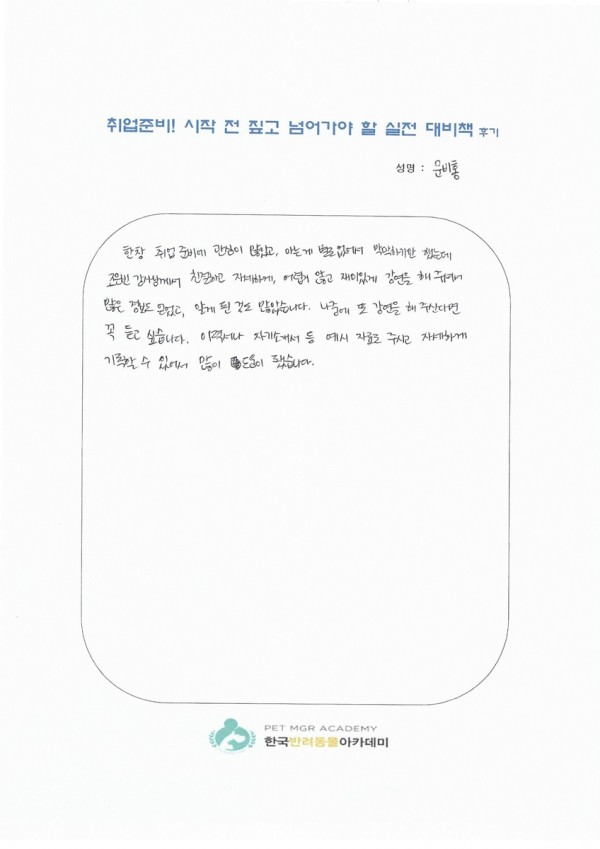 취업준비! 시작 전 짚고 넘어가야 할 실전 대비책 후기
성명 : 문비홍
한창 취업 준비에 관심이 많았고, 아는게 별로 없어서 막막하기만 했는데
강사님께서 친절하고 자세하게, 어렵지 않고 재미있게 강연을 해 주셔서
많은 정보도 얻었고, 알게 된 것도 많았습니다. 나중에 또 강연을 해 주신다면
꼭 듣고 싶습니다. 이력서나 자기소개서 등 예시 자료도 주시고 자세하게
기록할 수 있어서 많이 도움이 됐습니다.
PET MGR ACADEMY
한국반려동물아카데미